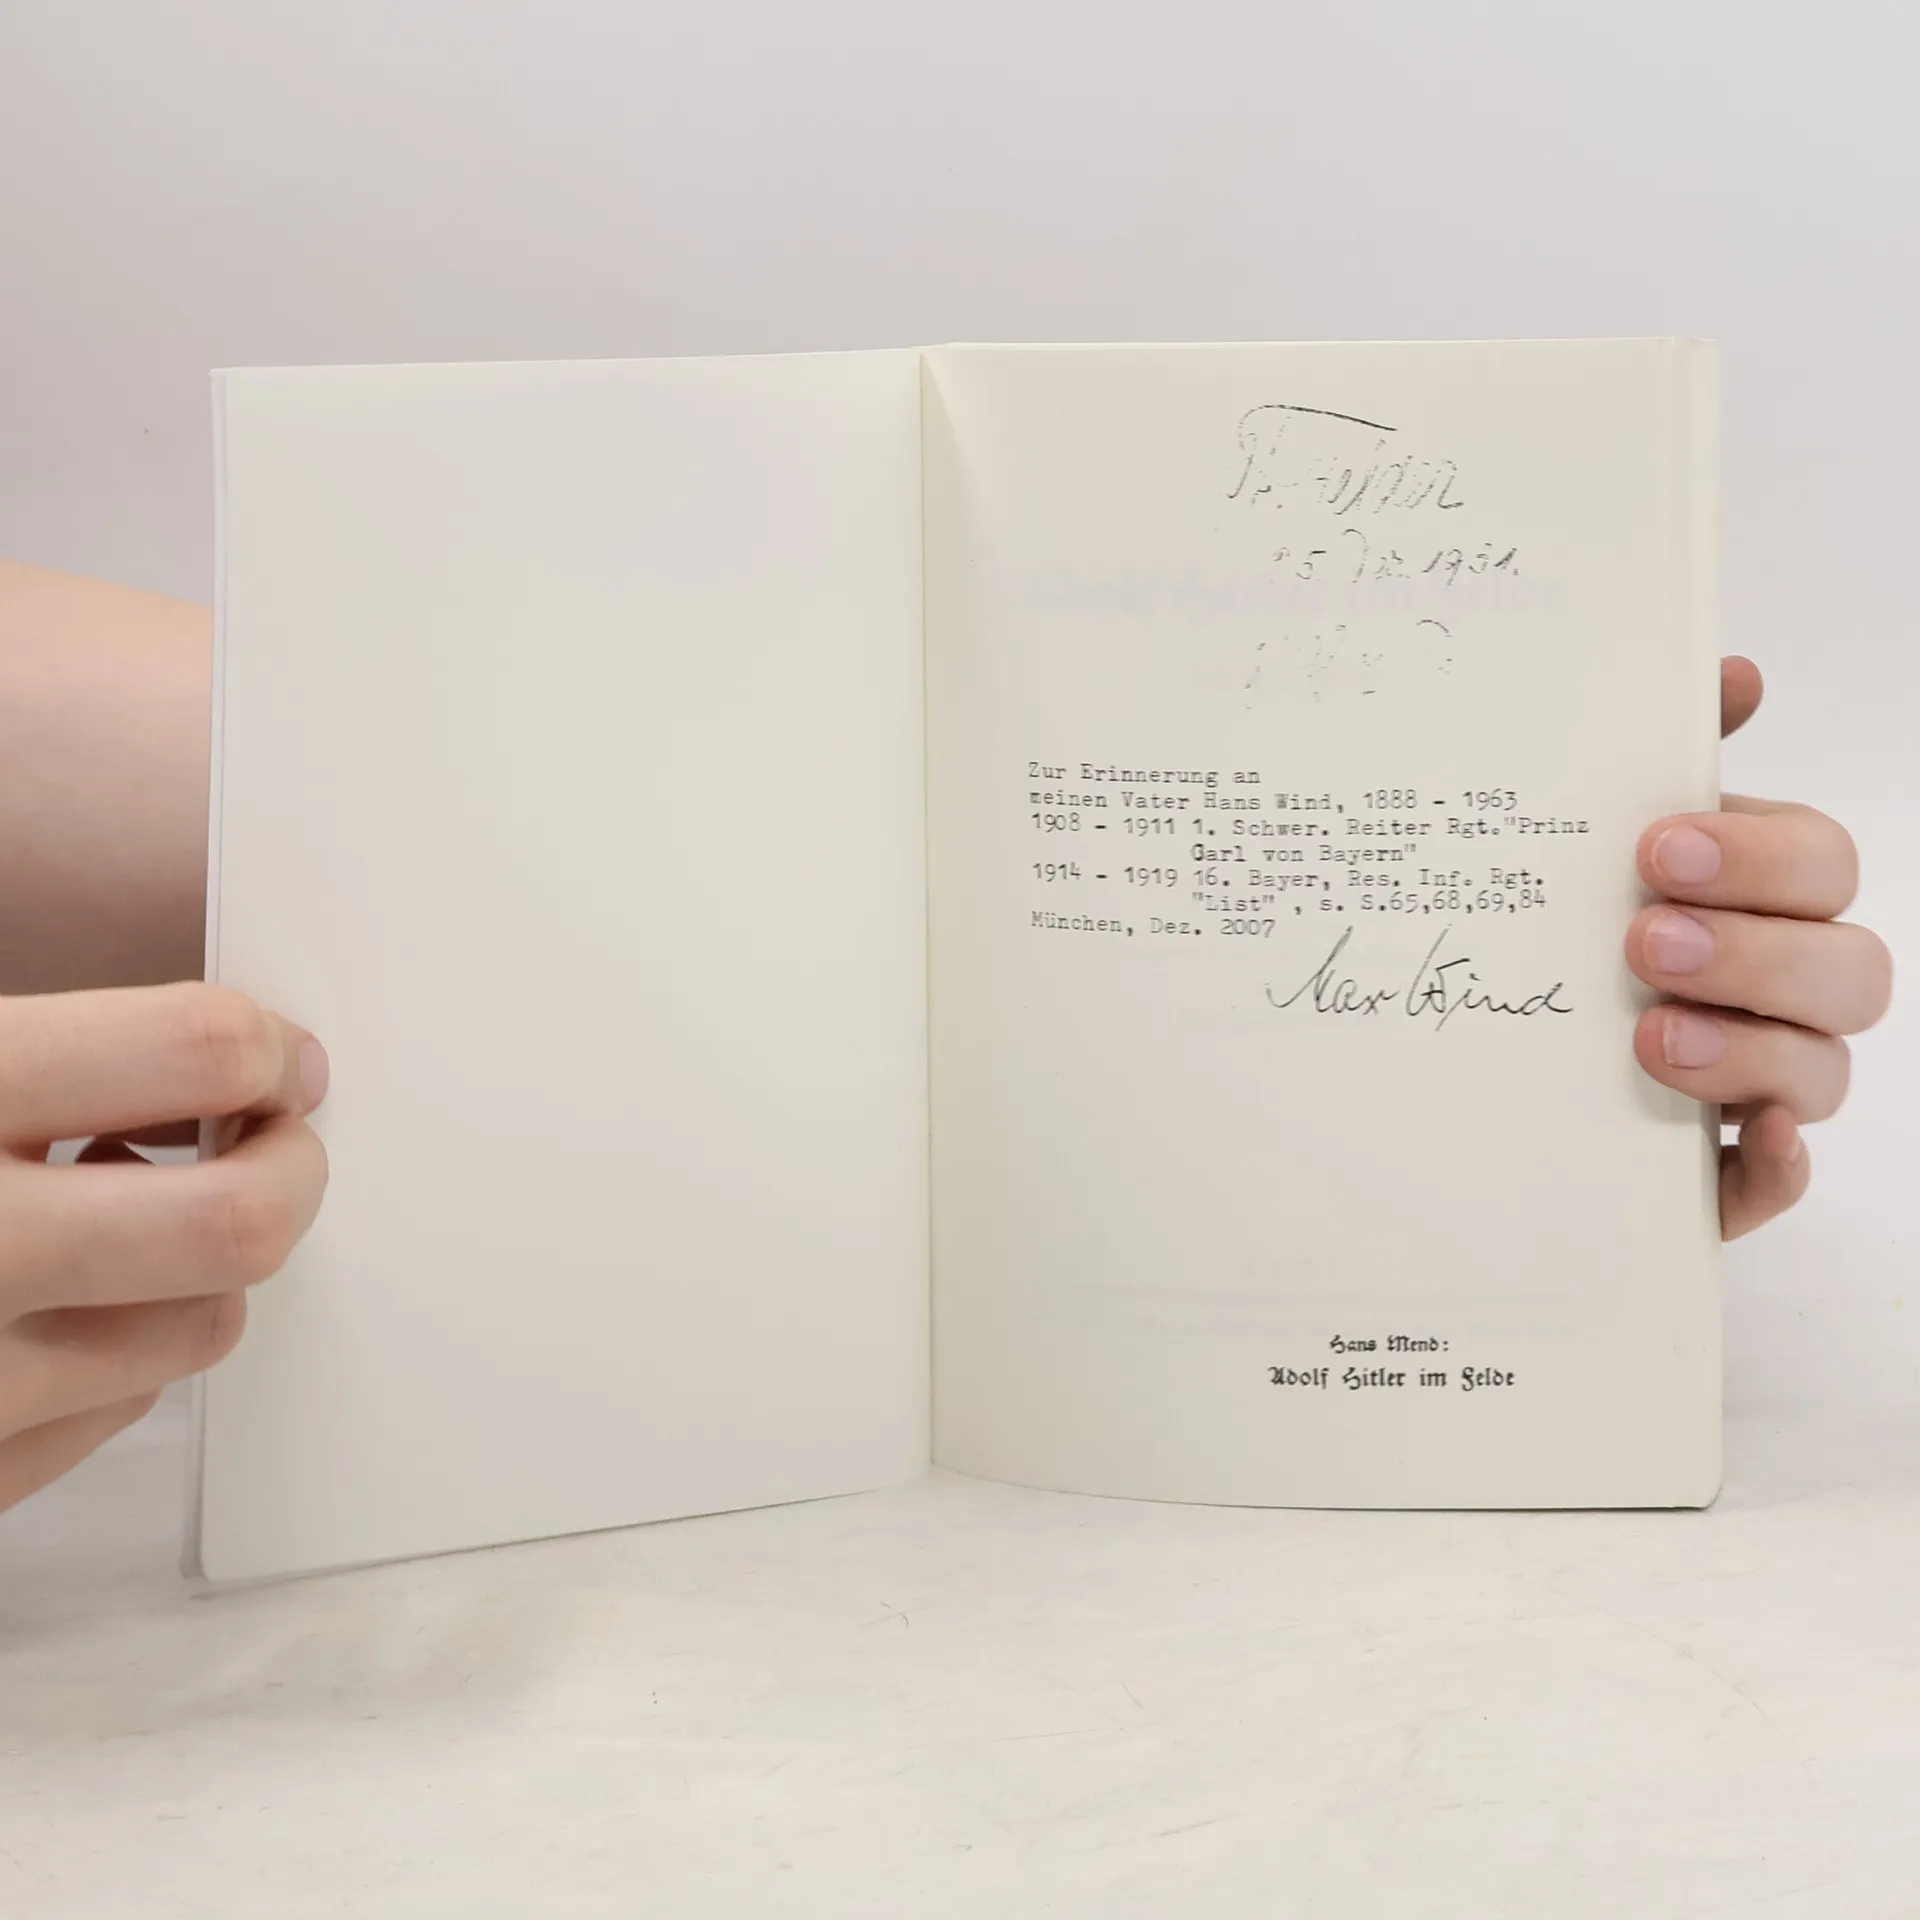 25 Dez. 1931.
Zur Erinnerung an
meinen Vater Hans Wind, 1888 - 1963
1908 - 1911 1. Schwer. Reiter Rgt."Prinz
Carl von Bayern"
1914 - 1919 16. Bayer, Res. Inf. Rgt.
"List" , s. S.65,68,69,84
München, Dez. 2007
Max Wind
Hans Mend:
Adolf Hitler im Felde